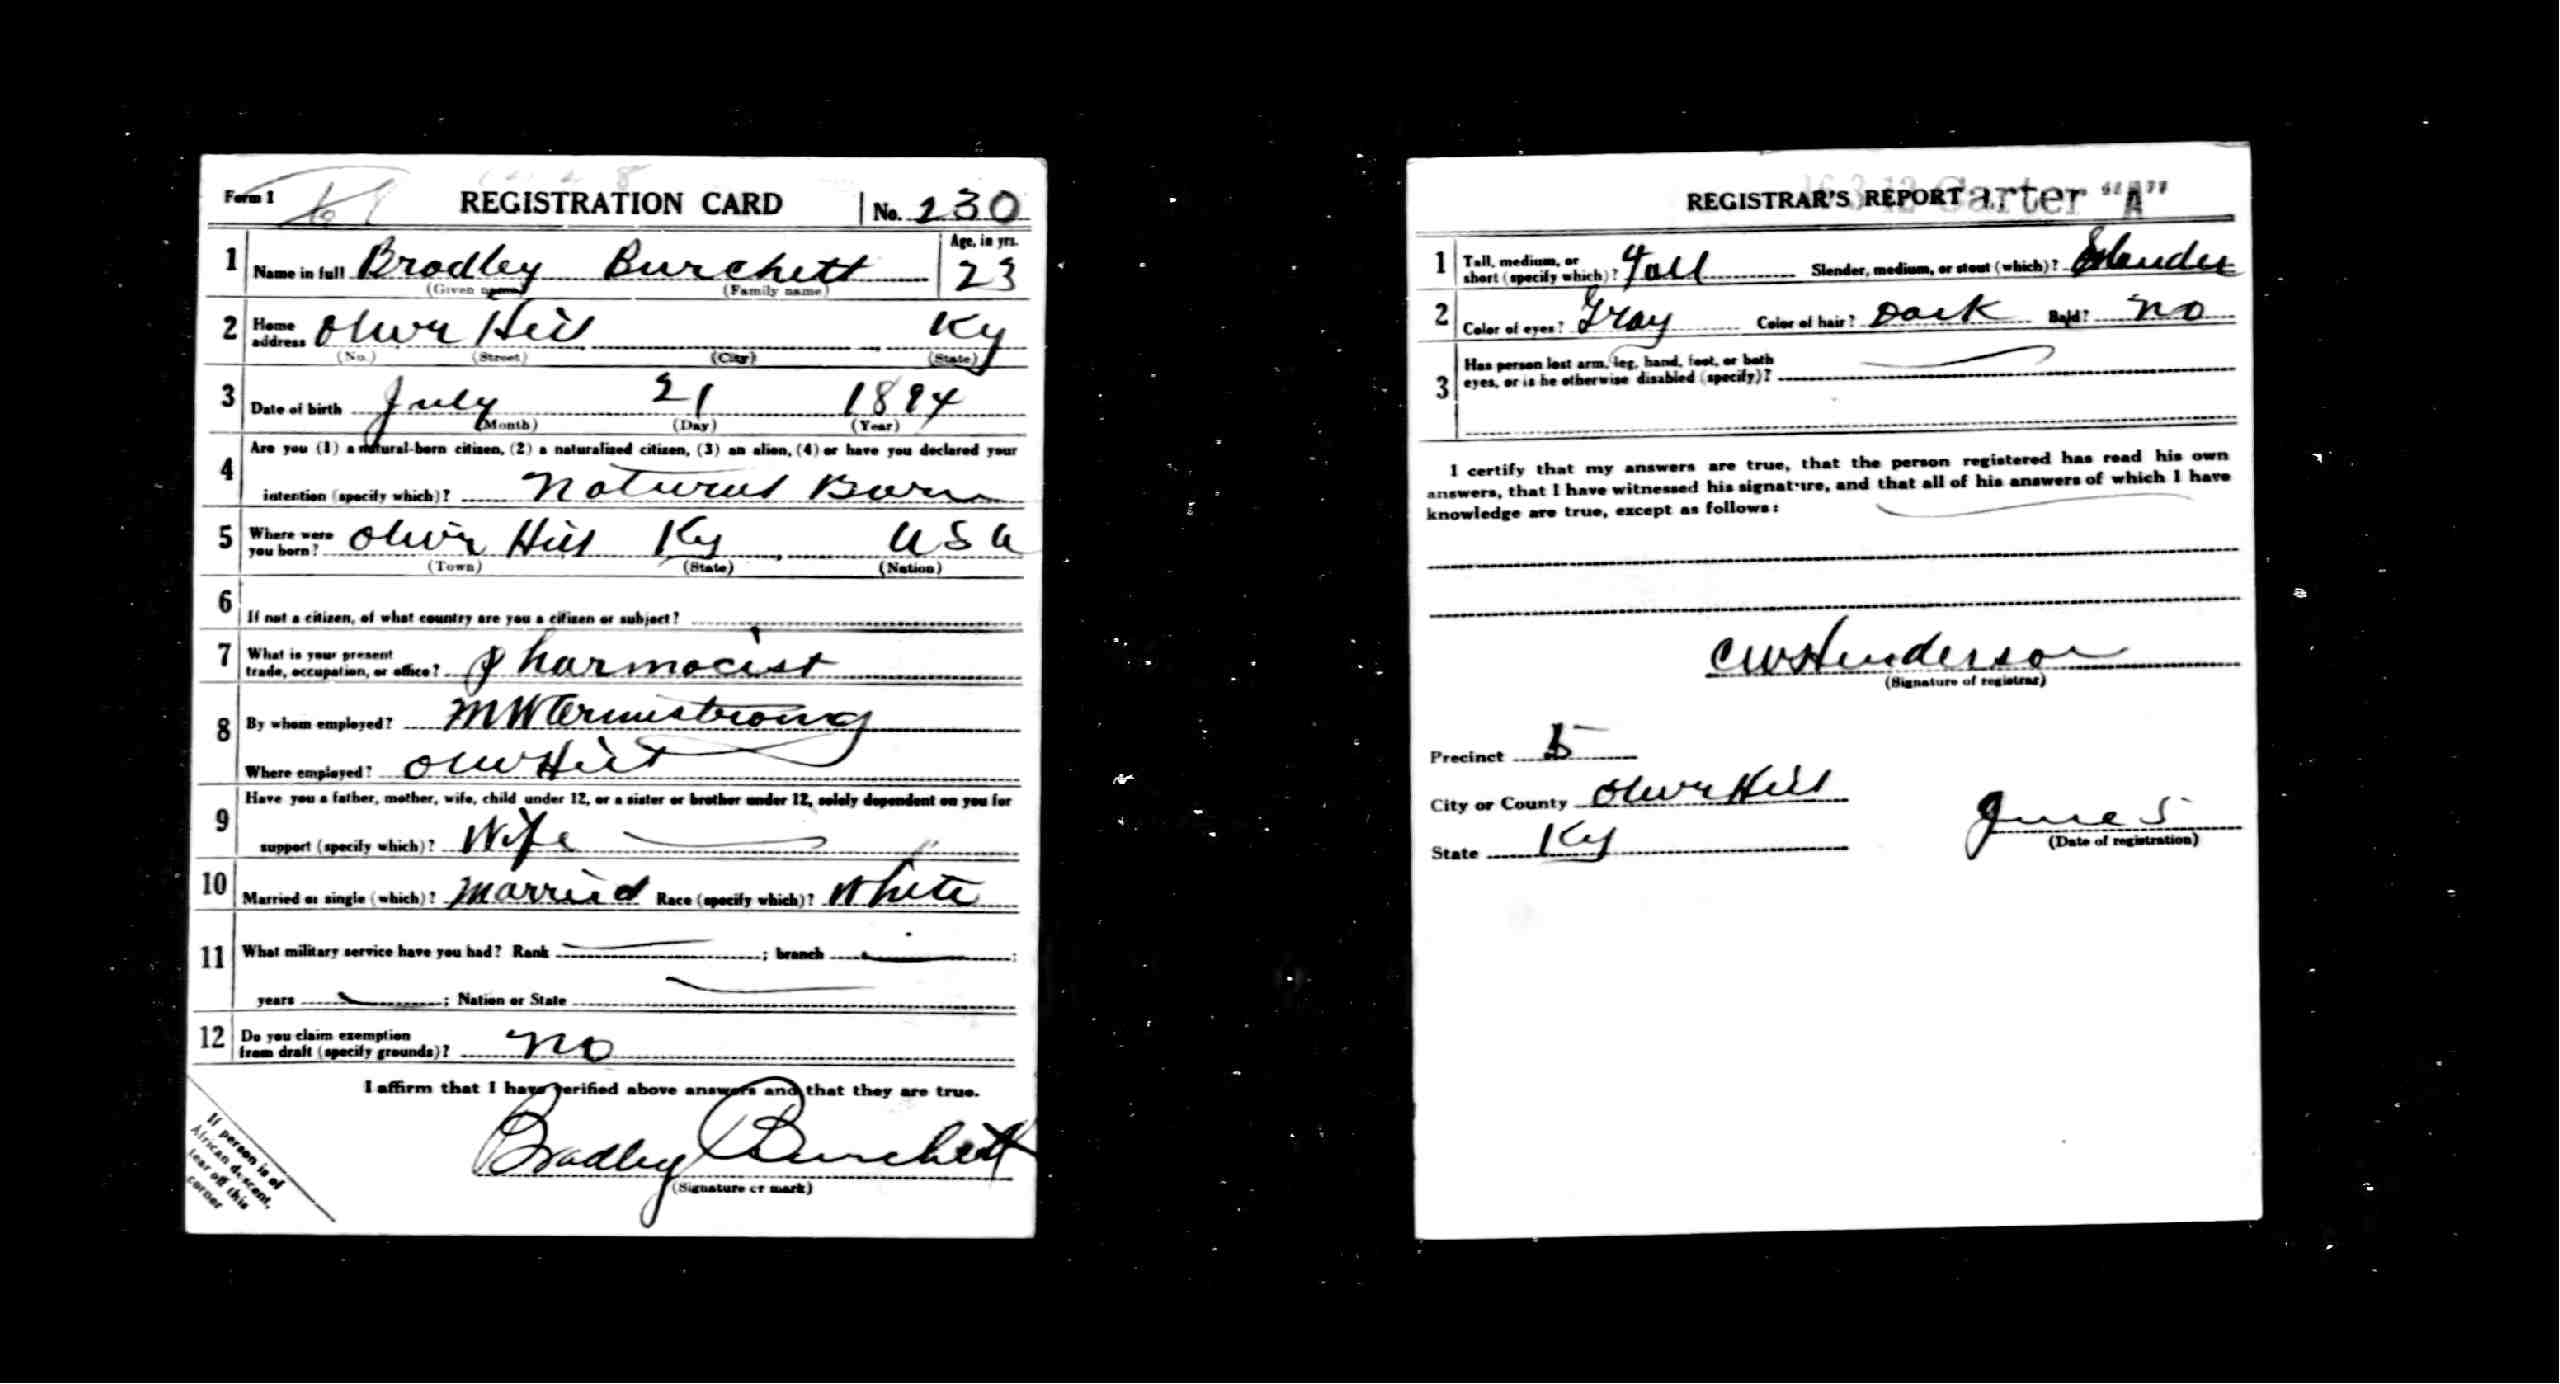 Form 1
REGISTRATION CARD No. 230
Age, in yrs.
1 Name in full Bradley Burchett 23
(Given name) (Family name)
2 Home address Olive Hill Ky
(No.) (Street) (City) (State)
3 Date of birth July 21 1894
(Month) (Day) (Year)
4 Are you (1) a natural-born citizen, (2) a naturalized citizen, (3) an alien, (4) or have you declared your
intention (specify which)? Natural Born
5 Where were you born? Olive Hill Ky USA
(Town) (State) (Nation)
6 If not a citizen, of what country are you a citizen or subject?
7 What is your present trade, occupation, or office? Pharmocist
8 By whom employed? M W Armstrong
Where employed? Olive Hill
9 Have you a father, mother, wife, child under 12, or a sister or brother under 12, solely dependent on you for
support (specify which)? Wife
10 Married or single (which)? Married Race (specify which)? White
11 What military service have you had? Rank ; branch ;
years ; Nation or State
12 Do you claim exemption
from draft (specify grounds)? No
I affirm that I have verified above answers and that they are true.
Bradley Burchett
(Signature or mark)
If person is of
African descent,
tear off this
corner
REGISTRAR'S REPORT Carter "A"
1 Tall, medium, or short (specify which)? Tall Slender, medium, or stout (which)? Slender
2 Color of eyes? Gray Color of hair? Dark Bald? No
3 Has person lost arm, leg, hand, foot, or both
eyes, or is he otherwise disabled (specify)?
I certify that my answers are true, that the person registered has read his own
answers, that I have witnessed his signature, and that all of his answers of which I have
knowledge are true, except as follows:
C W Henderson
(Signature of registrar)
Precinct 5
City or County Olive Hill
State Ky
June 5
(Date of registration)